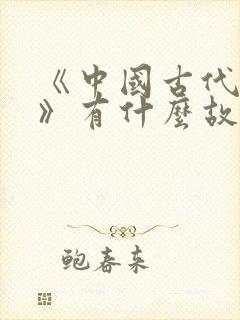 《中國古代
》有什麼故
鮑春来